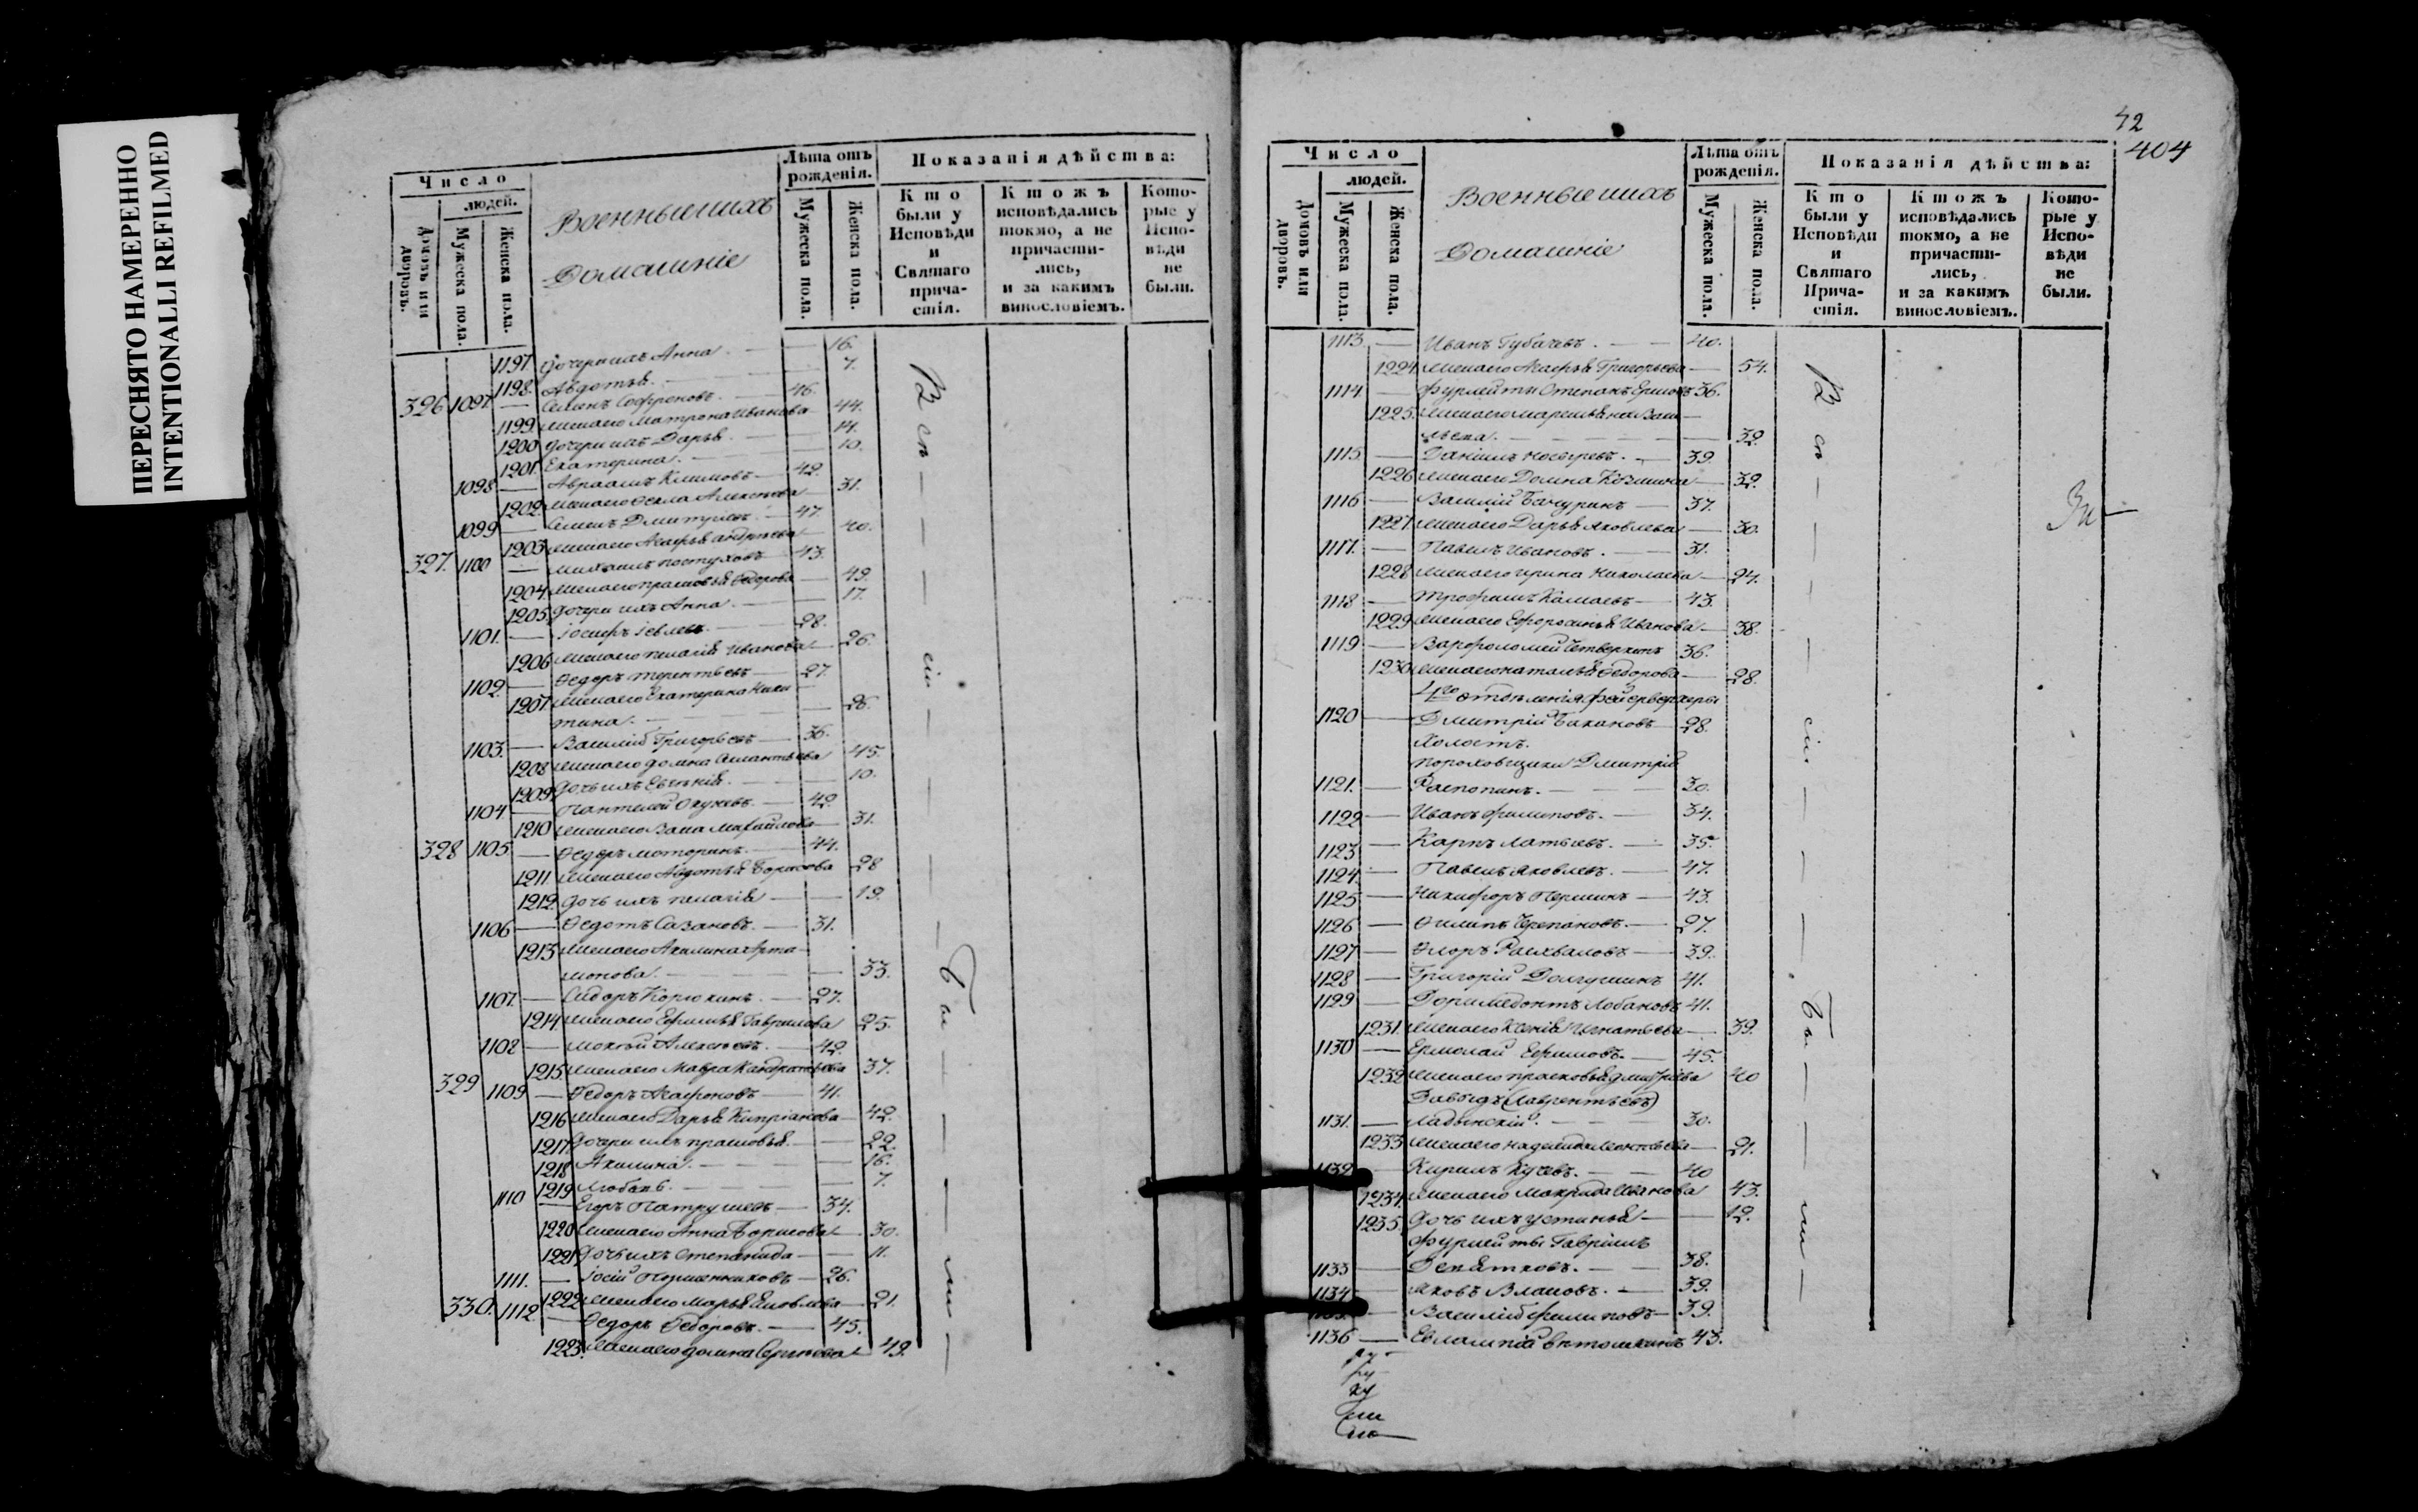 ПЕРЕСНЯТО НАМЕРЕННО
INTENTIONALLI REFILMED
Число
людей.
Домовъ или дворовъ.
Мужеска пола.
Женска пола.
Военные ихъ
Домашніе
Лѣта отъ рожденія.
Мужеска пола.
Женска пола.
Показанія дѣйства:
Кто были у Исповѣди и Святаго причастія.
Ктожъ исповѣдались токмо, а не причастились, и за какимъ винословіемъ.
Которые у Исповѣди не были.
1197 дочери ихъ Анна 16.
1198 Авдотья 7.
326 1097 Семенъ Софроновъ 46.
1199 жена его Матрона Иванова 44.
1200 дочери ихъ Дарья 14.
1201 Екатерина 10.
1098 Авраамъ Климовъ 42.
1202 жена его Ѳекла Алексѣева 31.
1099 Семенъ Дмитріевъ 47.
1203 жена его Агафья Андреева 40.
327. 1100 Михаилъ Постуховъ 43.
1204 жена его Прасковья Ѳедорова 49.
1205 дочери ихъ Анна 17.
1101. Іосифъ Іевлевъ 28.
1206 жена его Пелагія Иванова 26.
1102. Ѳедоръ Терентьевъ 27.
1207 жена его Екатерина Ники-
тина. 26.
1103. Василій Григорьевъ 36.
1208 жена его Домна 45.
1209 дочь ихъ Евгенія 10.
1104 Пантелей Окуневъ 42
1210 жена его Михайлова 31.
328 1105 Ѳедоръ Моторинъ 44.
1211. жена его Авдотья Борисова 28
1212. дочь ихъ Пелагія 19.
1106 Ѳедотъ Сазановъ 31.
1213 жена его Акилина Арта-
монова. 33.
1107. Сидоръ Корюкинъ 27.
1214 жена его Ефимья Гаврилова 25.
1108 Мокей Алексеевъ 42.
1215 жена его Мавра Кандратьева 37.
329 1109 Ѳедоръ Агафоновъ 41.
1216 жена его Дарья Кипріанова 42.
1217 дочери ихъ Прасковья 22.
1218 Акилина. 16.
1219 Любовь. 7.
1110 Егоръ Патрушевъ 34.
1220 жена его Анна Борисова 30.
1221 дочь ихъ Степанида 11.
1111. 26.
1222 жена его Марья Яковлева 21.
330. 1112. Ѳедоръ Ѳедоровъ. 45.
1223. жена его Домна Сергѣева 49.
Всѣ
сіи
бы
ли
42
404
Число
людей.
Домовъ или дворовъ.
Мужеска пола.
Женска пола.
Военные ихъ
Домашніе
Лѣта отъ рожденія.
Мужеска пола.
Женска пола.
Показанія дѣйства:
Кто были у Исповѣди и Святаго Причастія.
Ктожъ исповѣдались токмо, а не причастились, и за какимъ винословіемъ.
Которые у Исповѣди не были.
1113. Иванъ Губачевъ. 40.
1224 жена его Агафья Григорьева 54.
1114. Фурлейты Степанъ Ершовъ 36.
1225. жена его Маремьяна Васи-
льева. 32.
1115 Даніилъ 39.
1226 жена его Домна Козмина 32.
1116 Василій Бачуринъ 37.
1227 жена его Дарья Яковлева 30.
1117. Павелъ Ивановъ. 31.
1228 жена его Ирина Николаева 24.
1118 Трофимъ Камаевъ 43.
1229 жена его Ефросинья Иванова 38.
1119 Варфоломей Четверкинъ 36.
1230 жена его Наталья Ѳедорова 28.
4го отделенія фейерверкеры
1120 Дмитрій Бакановъ 28.
Холостъ.
Пороховщики Дмитрій
1121. Распопинъ. 30.
1122 Иванъ Филиповъ. 34.
1123 Карпъ Латыевъ. 35.
1124. Павелъ Яковлевъ. 47.
1125 Никифоръ Першинъ 43.
1126 Филипъ Черепановъ. 27.
1127 Флоръ Расхваловъ 39.
1128 Григорій Долгушинъ 41.
1129 Доримедонтъ Лобановъ 41.
1231. жена его Ксенія Игнатьева 39.
1130 Ермолай Ефимовъ. 45.
1232 жена его Прасковья Дмитріева 40
Давыдъ (Лаврентьевъ)
1131. Ладынскій. 30.
1233 жена его Надежида Леонтьева 21.
1132 Кирилъ Кучевъ. 40
1234. жена его Макрида Иванова 43.
1235 дочь ихъ Устинья 12.
Фурлейты Гавріилъ
1133 Девятковъ. 38.
1134 Яковъ Власовъ. 39.
Василій Филиповъ 39.
1136 Евлампій Вѣтошкинъ 43.
Всѣ
сіи
бы
ли